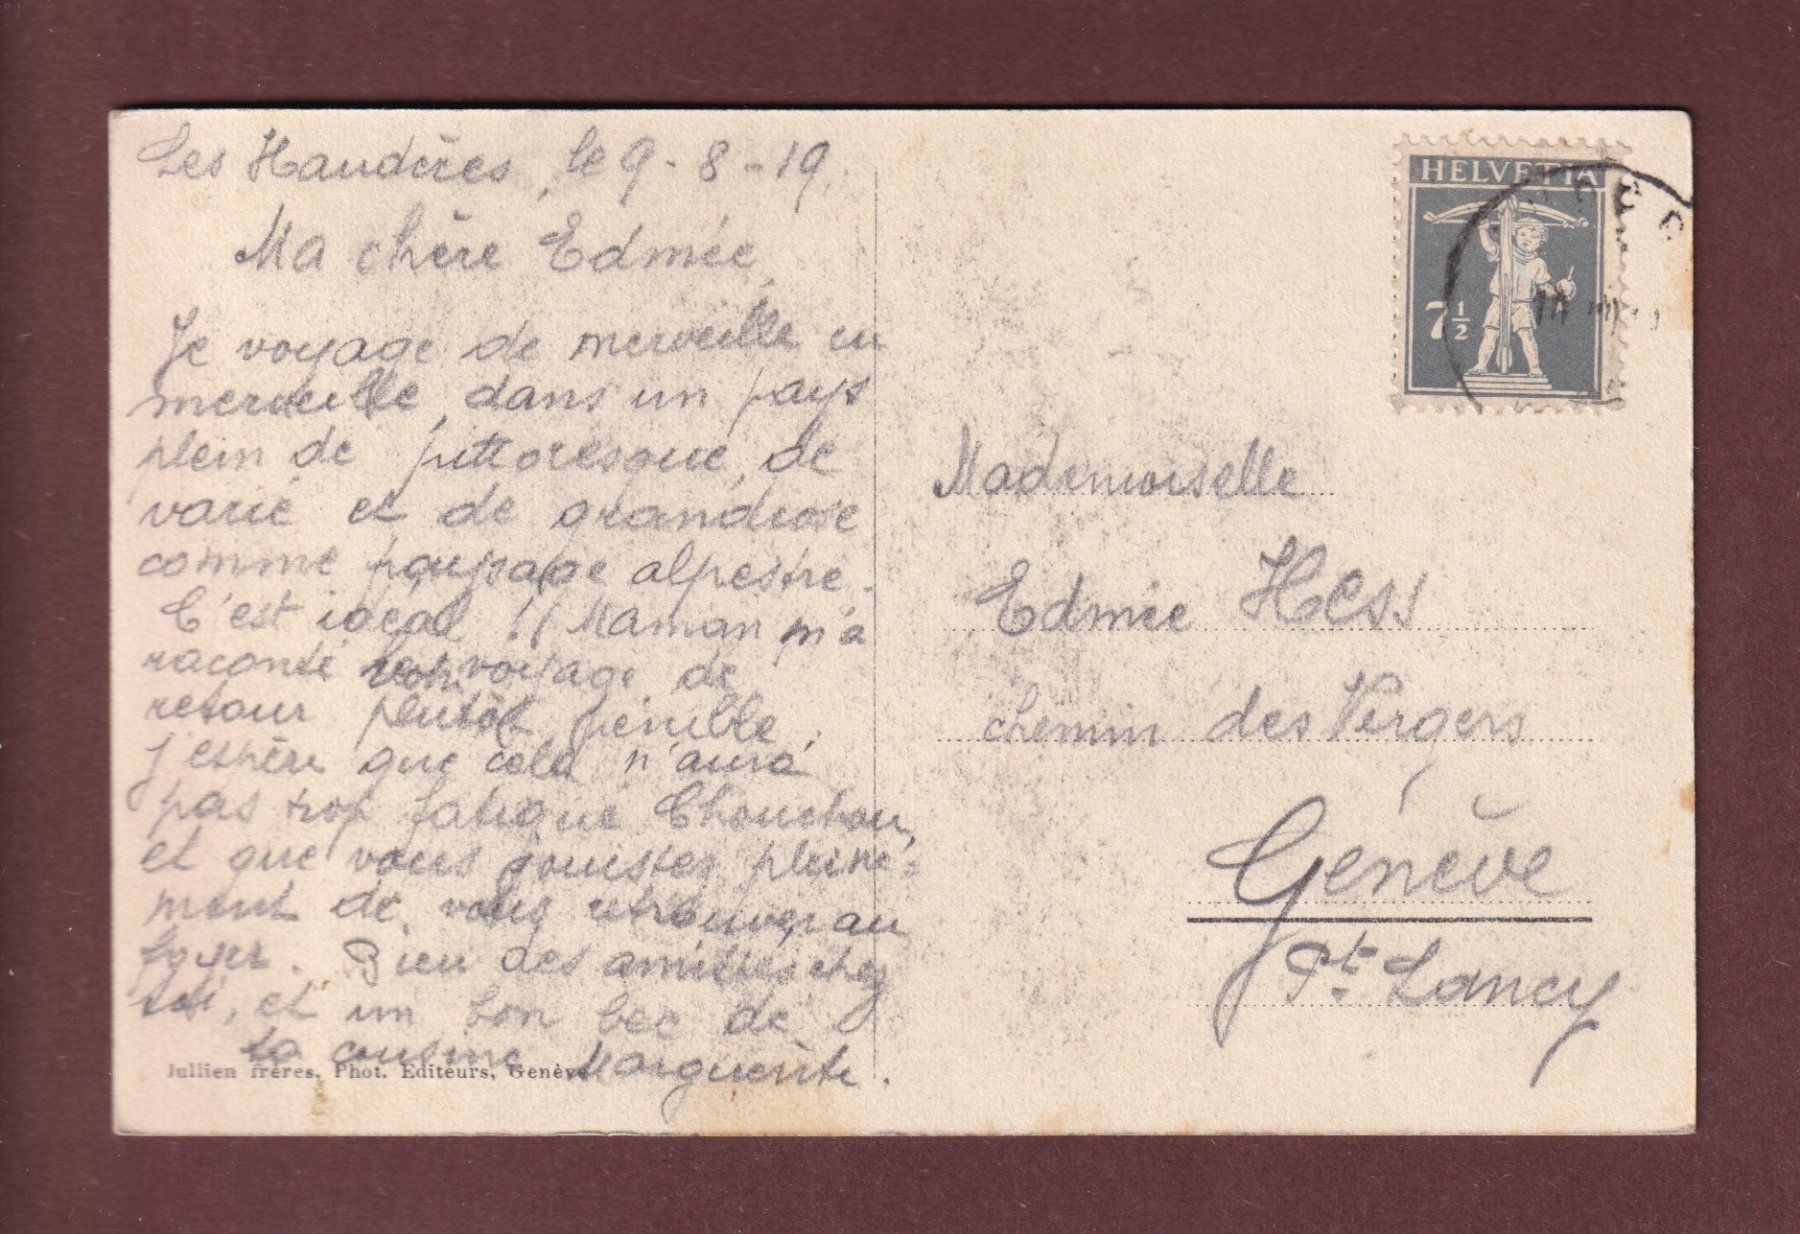 Les Haudères, le 9-8-19.
Ma chère Edmée,
Je voyage de merveille en
merveille, dans un pays
plein de pittoresque, de
varié et de grandiose
comme paysage alpestre.
C'est idéal !! Maman m'a
raconté votre voyage de
retour plutôt pénible.
J'espère que cela n'aura
pas trop fatigué Chouchou,
et que vous jouissez pleine=
ment de vous retrouver au
foyer. Bien des amitiés chez
toi, et un bon bec de
ta cousine Marguerite.
Jullien frères, Phot. Editeurs, Genève
HELVETIA
7½
Mademoiselle
Edmée Hess
chemin des Vergers
Genève
Pt. Lancy